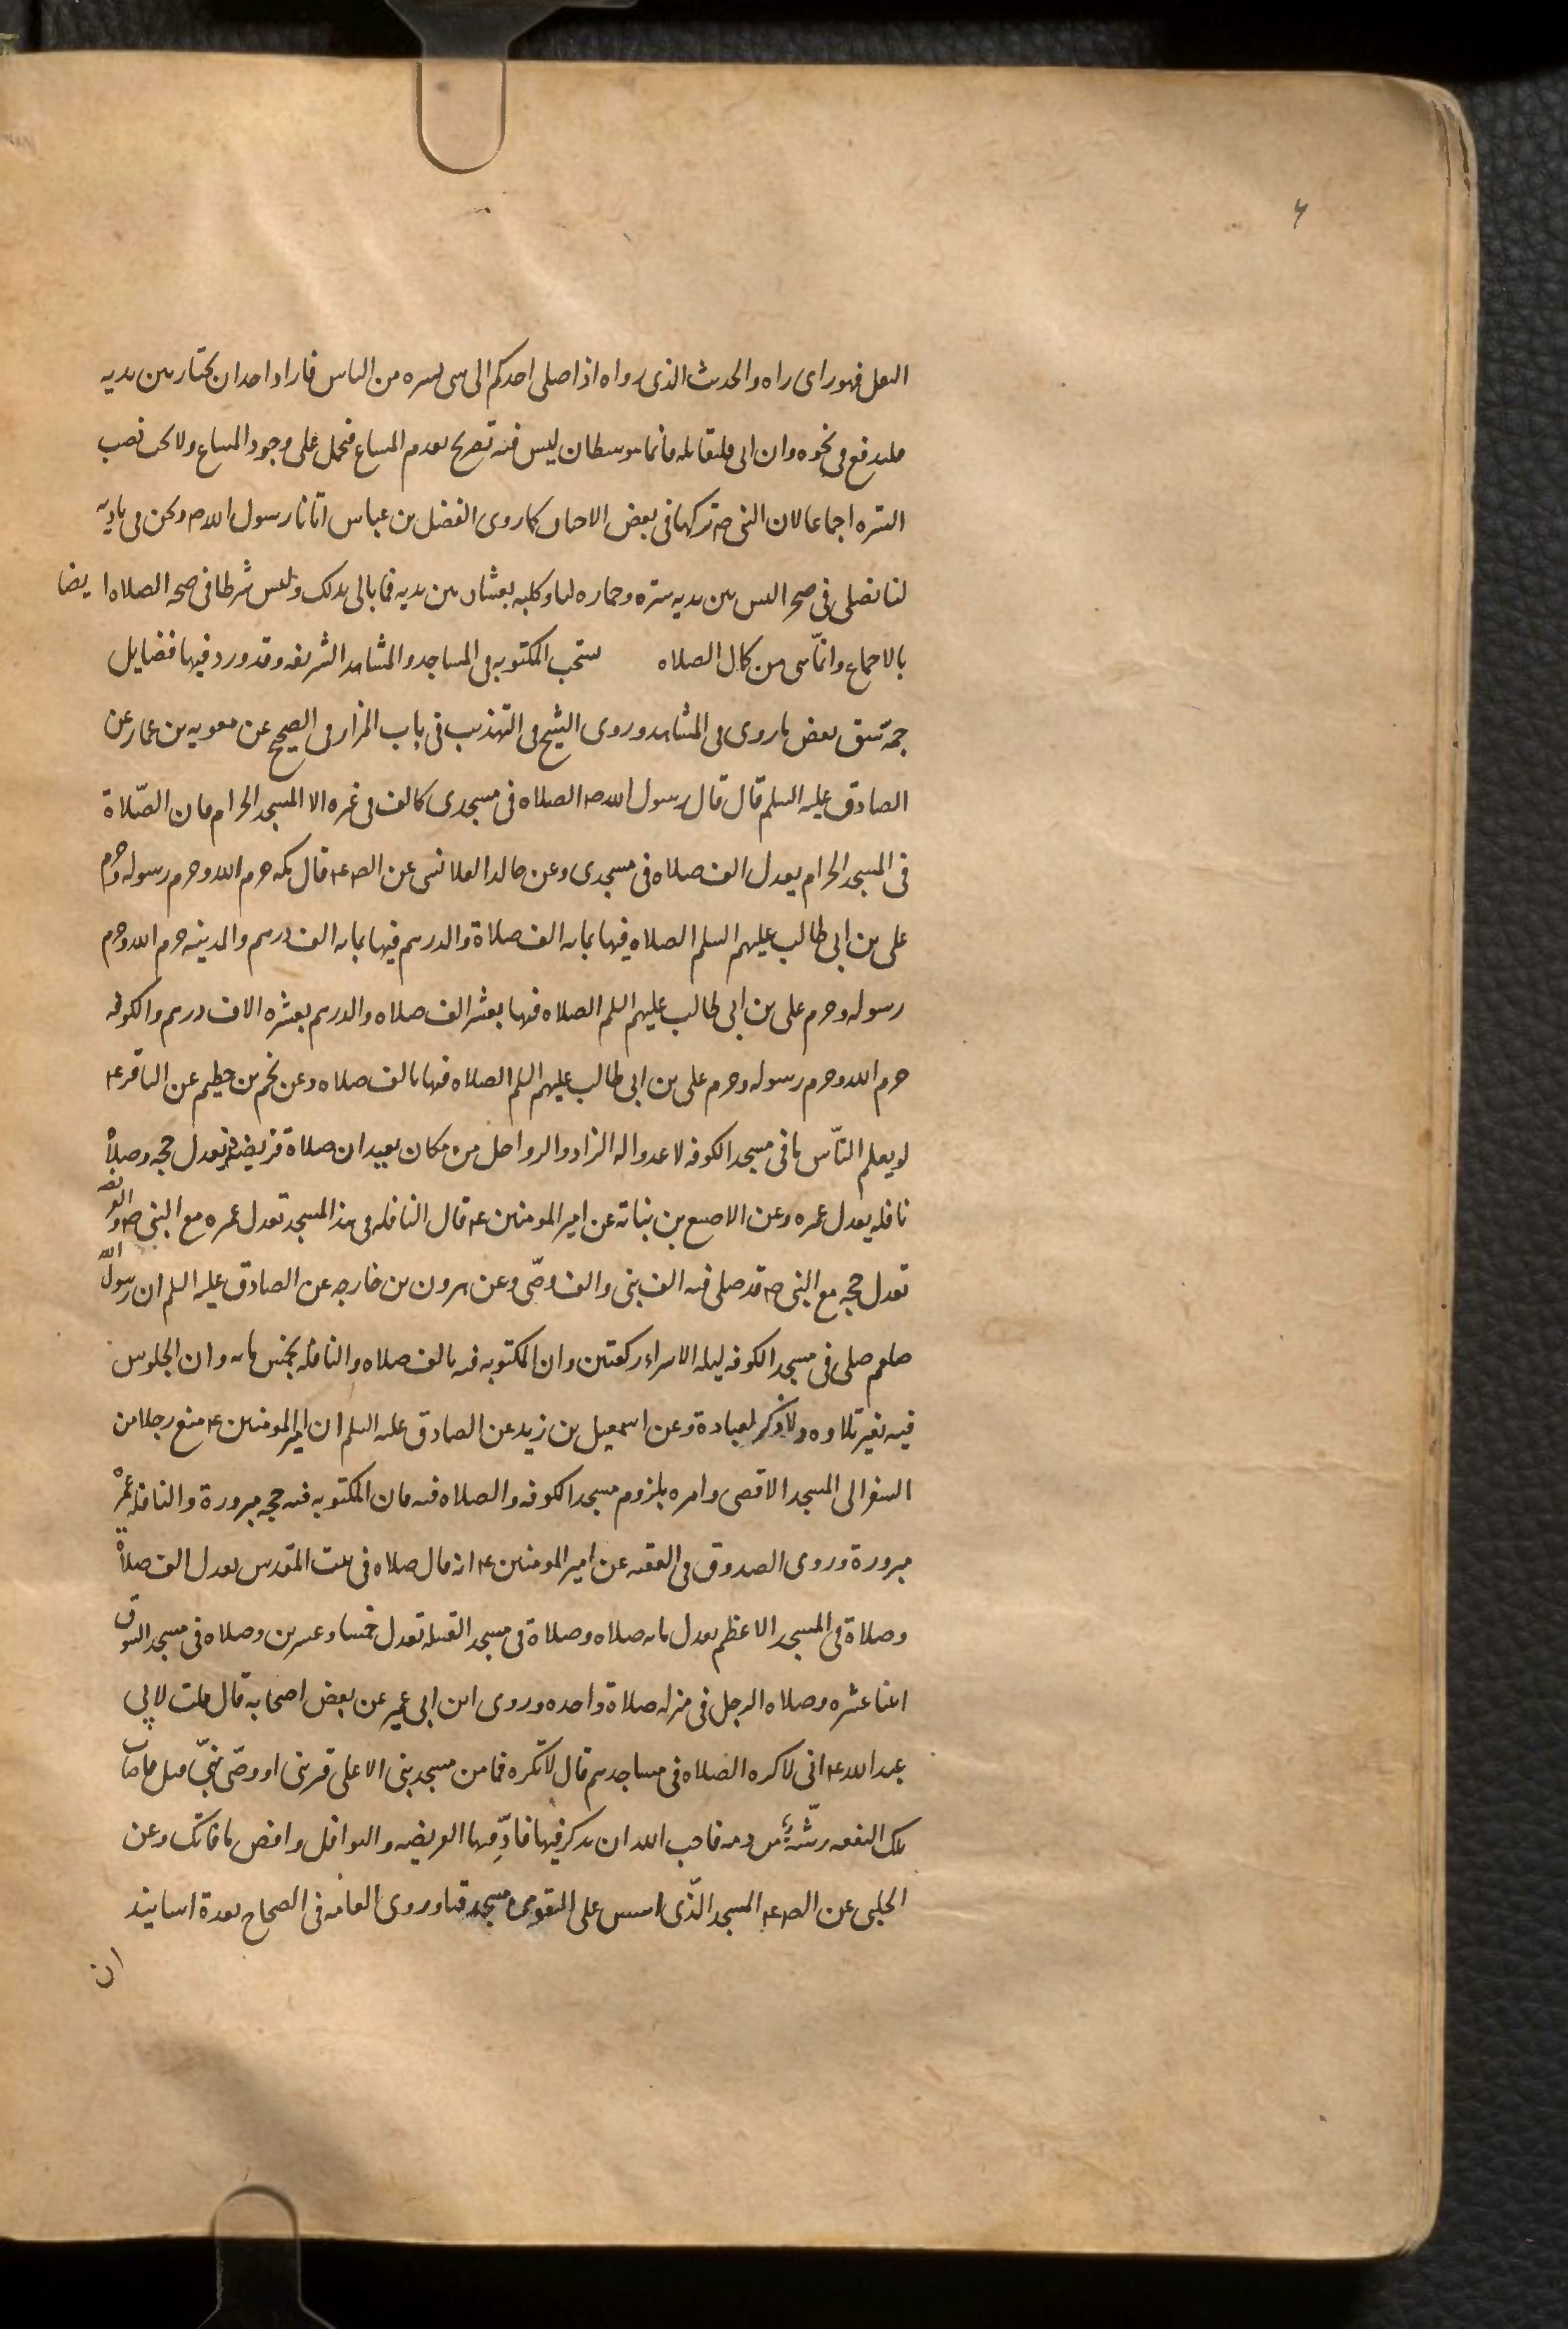 ۶
النعل فهو رأى رآه والحديث الذى رواه اذا صلى احدكم الى شى يستره من الناس فاراد احد ان يجتاز بين يديه
فليدفع فى نحره وان ابى فليقاتله فانما هو شيطان ليس فيه تصريح بعدم المساغ فيحمل على وجود المساغ ولا يجب نصب
السترة اجماعا لان النبى ص تركها فى بعض الاحيان كما روى الفضل بن عباس اتانا رسول الله ص ونحن فى بادية
لنا فصلى فى صحرا ليس بين يديه سترة وحمارة لنا وكلبة يعبثان بين يديه فما بالى بذلك وليس شرطا فى صحة الصلاة ايضا
بالاجماع وانما هى من كمال الصلاة تستحب المكتوبة فى المساجد والمشاهد الشريفة وقد ورد فيها فضايل
جمة سبق بعض ما روى فى المشاهد وروى الشيخ فى التهذيب فى باب المزار فى الصحيح عن معوية بن عمار عن
الصادق عليه السلم قال قال رسول الله ص الصلاة فى مسجدى كالف فى غيره الا المسجد الحرام فان الصّلاة
فى المسجد الحرام يعدل الف صلاة فى مسجدى وعن خالد القلانسى عن الص ع قال مكة حرم الله وحرم رسوله وحرم
على بن ابى طالب عليهم السلم الصلاة فيها بماية الف صلاة والدرهم فيها بماية الف درهم والمدينة حرم الله وحرم
رسوله وحرم على بن ابى طالب عليهم السلم الصلاة فيها بعشر الف صلاة والدرهم بعشرة الاف درهم والكوفة
حرم الله وحرم رسوله وحرم على بن ابى طالب عليهم السلم الصلاة فيها بالف صلاة وعن نجم بن حطيم عن الباقر ع
لو يعلم النّاس ما فى مسجد الكوفة لاعدوا له الزاد والرواحل من مكان بعيد ان صلاة فريضة فيه تعدل حجة وصلاة
نافلة يعدل عمرة وعن الاصبغ بن نباتة عن امير المومنين ع قال النافلة فى هذا المسجد تعدل عمرة مع النبى ص والفريضة
تعدل حجة مع النبى ص قد صلى فيه الف نبى والف وصّى وعن هرون بن خارجة عن الصادق عليه السلم ان رسول الله
صلعم صلى فى مسجد الكوفة ليلة الاسراء ركعتين وان المكتوبة فيه بالف صلاة والنافلة بخمس ماية وان الجلوس
فيه بغير تلاوة ولا ذكر لعبادة وعن اسمعيل بن زيد عن الصادق عليه السلم ان امير المومنين ع منع رجلا من
السفر الى المسجد الاقصى وامره بلزوم مسجد الكوفة والصلاة فيه فان المكتوبة فيه حجة مبرورة والنافلة عمرة
مبرورة وروى الصدوق فى الفقيه عن امير المومنين ع انه قال صلاة فى بيت المقدس تعدل الف صلاة
وصلاة فى المسجد الاعظم تعدل ماية صلاة وصلاة فى مسجد القبيلة تعدل خمسا وعشرين وصلاة فى مسجد السوق
اثنا عشرة وصلاة الرجل فى منزله صلاة واحدة وروى ابن ابى عمير عن بعض اصحابه قال قلت لابى
عبد الله ع انى لاكره الصلاة فى مساجدهم قال لا تكره فما من مسجد بنى الا على قبر نبى او وصّى نبىّ قتل فاصاب
تلك البقعة رشّة من دمه فاحب الله ان يذكر فيها فادّ فيها الفريضة والنوافل واقض ما فاتك وعن
الحلبى عن الص ع المسجد الّذى اسس على التقوى مسجد قبا وروى العامة فى الصحاح بعدة اسانيد
ان